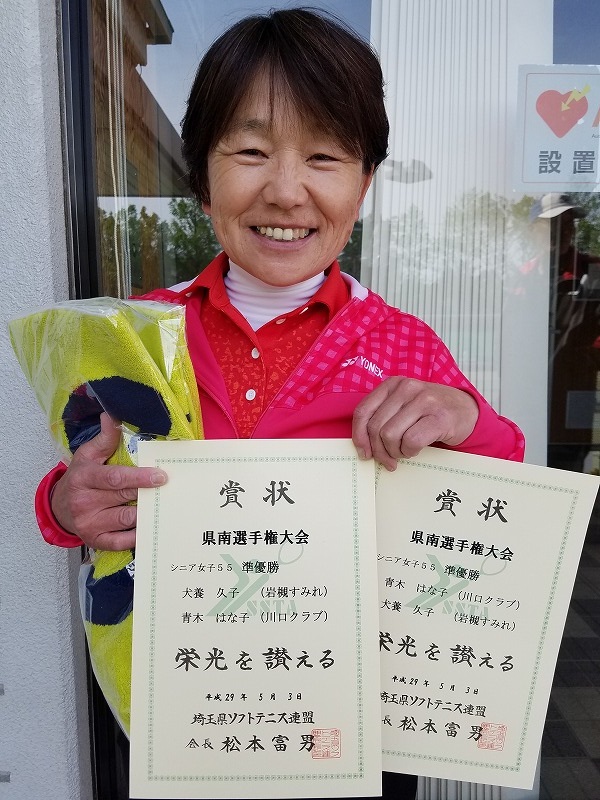 設置
YONEX
賞状
県南選手権大会
シニア女子55 準優勝
犬養 久子 (岩槻すみれ)
青木 はな子 (川口クラブ)
SSTA
栄光を讃える
平成29年 5月 3日
埼玉県ソフトテニス連盟
会長 松本富男
賞状
県南選手権大会
シニア女子55 準優勝
青木 はな子 (川口クラブ)
犬養 久子 (岩槻すみれ)
SSTA
栄光を讃える
平成29年 5月 3日
埼玉県ソフトテニス連盟
会長 松本富男